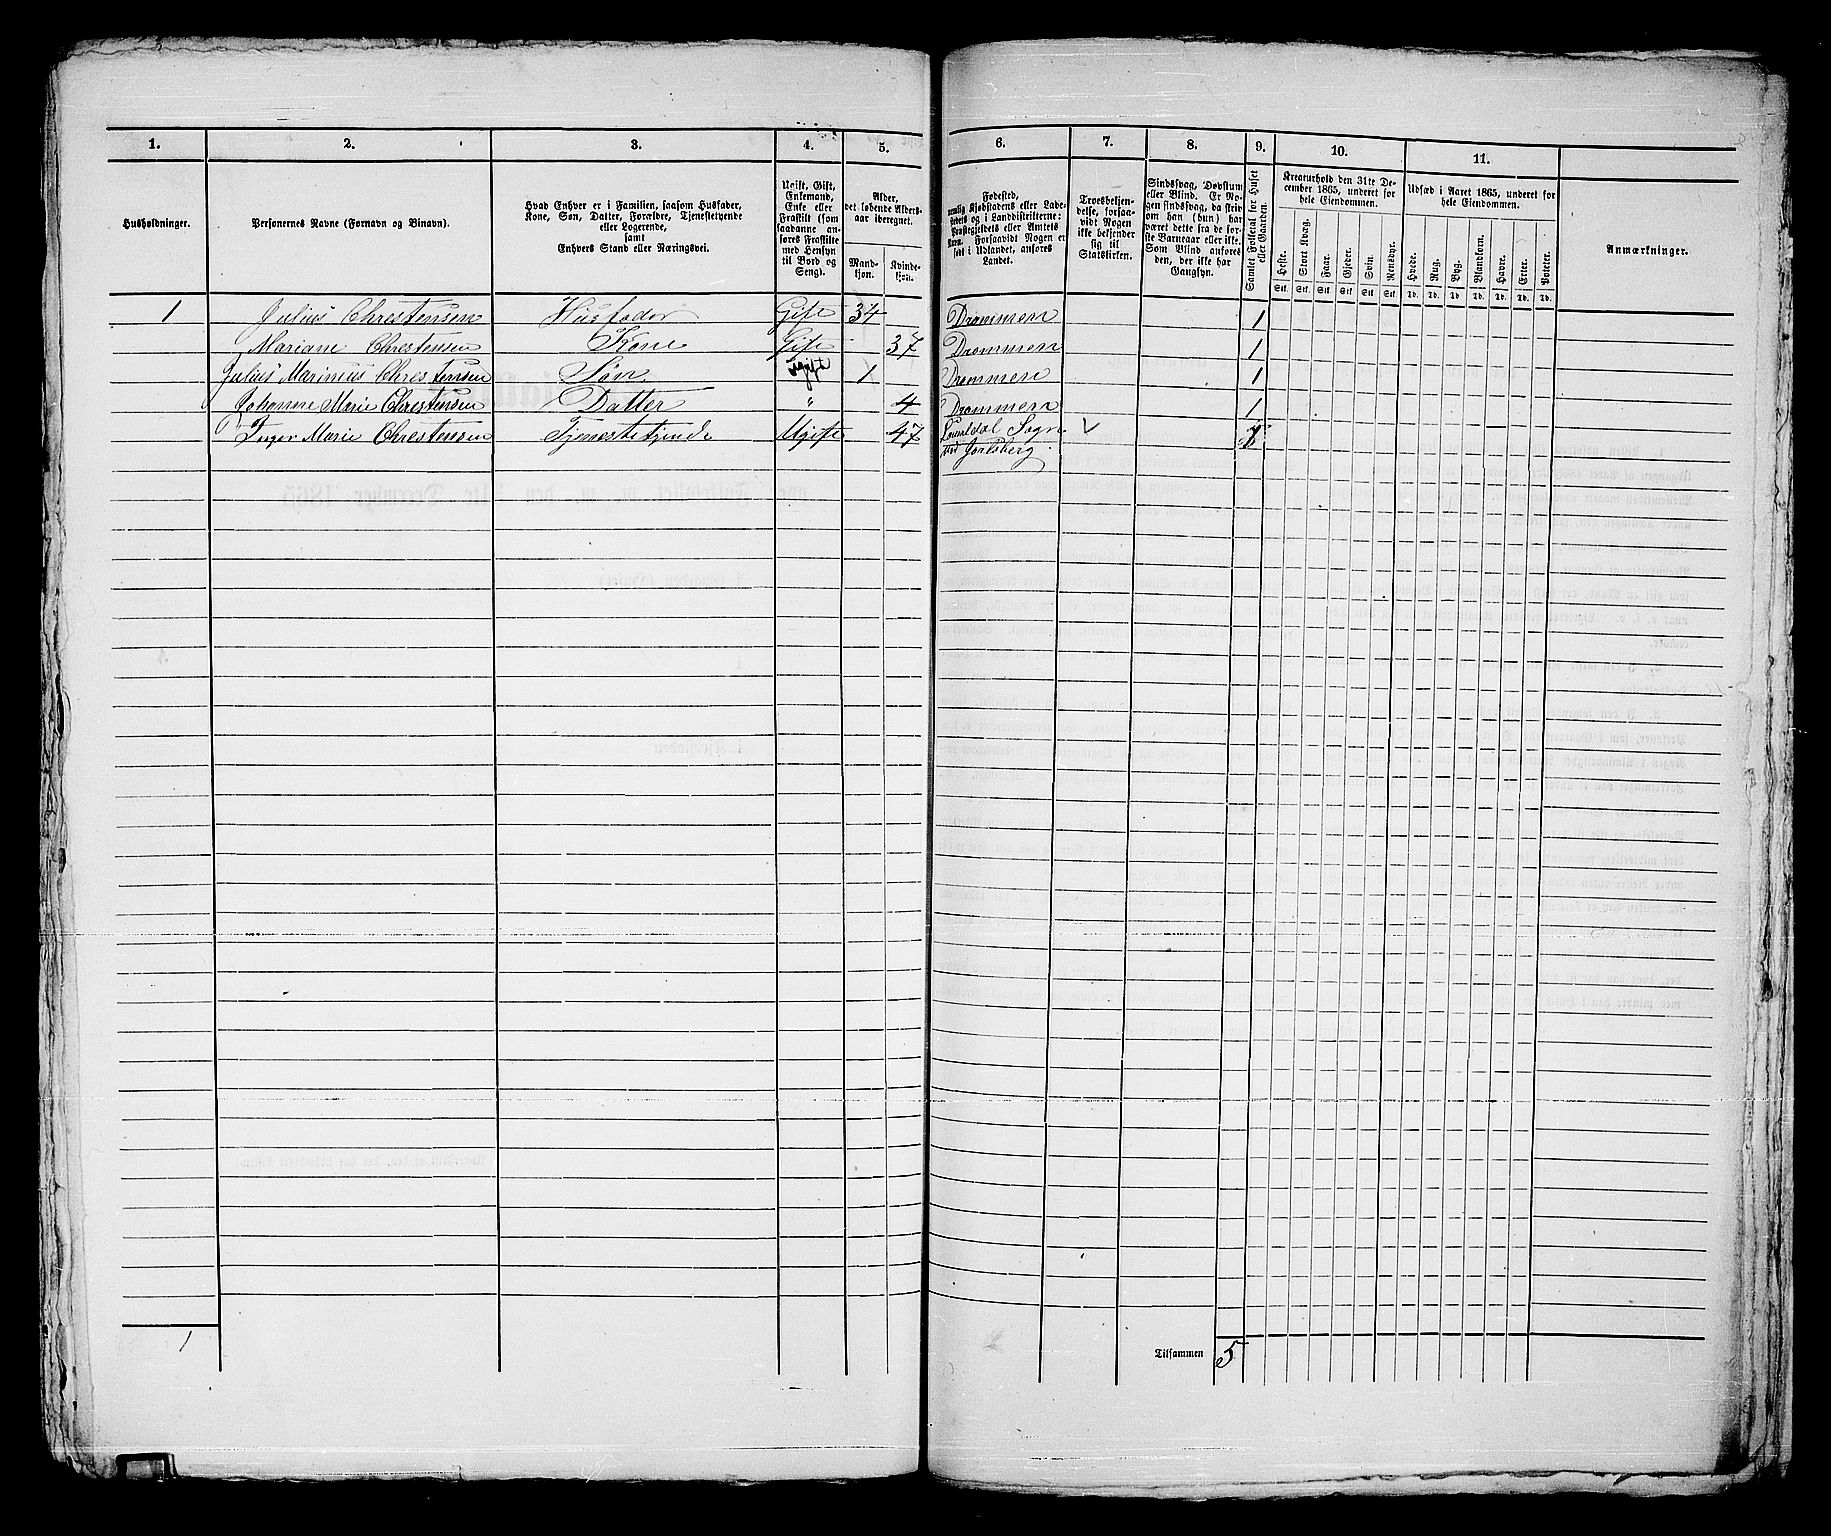 1. 2. 3. 4. 5. 6. 7. 8. 9. 10. 11.
Husholdninger.
Personernes Navne (Fornavn og Binavn).
Hvad Enhver er i Familien, saasom Husfader,
Kone, Søn, Datter, Forældre, Tjenestetyende
eller Logerende,
samt
Enhvers Stand eller Næringsvei.
Ugift, Gift,
Enkemand,
Enke eller
Fraskilt (som
saadanne an-
føres Fraskilte
med Hensyn
til Bord og
Seng).
Alder,
det løbende Alders-
aar iberegnet.
Mand-
kjøn.
Kvinde-
kjøn.
Fødested,
nemlig Kjøbstadens eller Lade-
stedets og i Landdistrikterne:
Præstegjeldets eller Amtets
Navn. Forsaavidt Nogen er
født i Udlandet, anføres
Landet.
Troesbekjen-
delse, forsaa-
vidt Nogen
ikke bekjender
sig til
Statskirken.
Sindssvag, Døvstum
eller Blind. Er No-
gen sindssvag, da skriv
om han (hun) har
været dette fra de før-
ste Barneaar eller ikke.
Som Blind anføres
den, der ikke har
Gangsyn.
Samlet Folketal for Huset
eller Gaarden.
Kreaturhold den 31te De-
cember 1865, underet for
hele Eiendommen.
Heste. Stort Kvæg. Faar. Gjeder. Svin. Rensdyr.
Stk. Stk. Stk. Stk. Stk. Stk.
Udsæd i Aaret 1865, underet for
hele Eiendommen.
Hvede. Rug. Byg. Blandkorn. Havre. Erter. Poteter.
Td. Td. Td. Td. Td. Td. Td.
Anmærkninger.
1 Julius Chrestensen Husfader Gift 34 Drammen 1
Mariane Chrestensen Kone Gift 37 Drammen 1
Julius Marinus Chrestensen Søn ugift 1 Drammen 1
Johanne Marie Chrestensen Datter " 4 Drammen 1
Inger Marie Chrestensen Tjenestetjende Ugift 47 Sogn V 1
Jarlsberg
1
Tilsammen 5